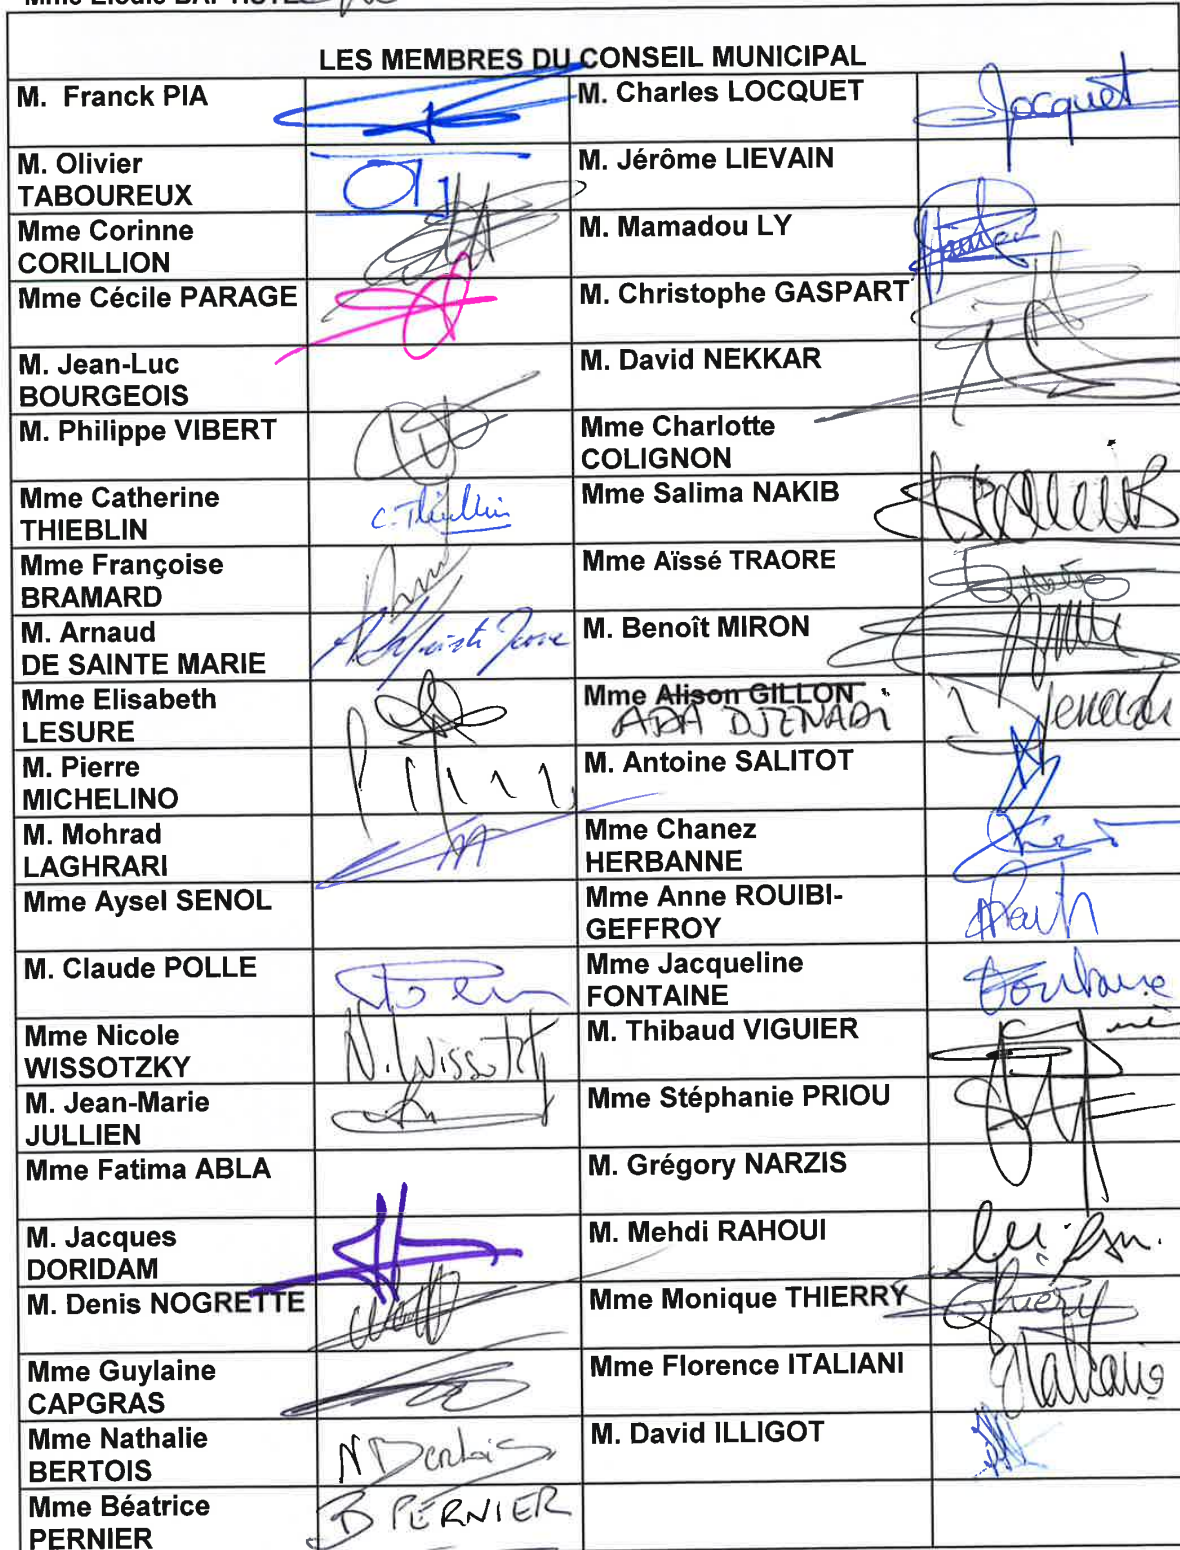 Mme Elodie BAPTISTE
LES MEMBRES DU CONSEIL MUNICIPAL
M. Franck PIA
M. Charles LOCQUET
Locquet
M. Olivier
TABOUREUX
M. Jérôme LIEVAIN
Mme Corinne
CORILLION
M. Mamadou LY
Mme Cécile PARAGE
M. Christophe GASPART
M. Jean-Luc
BOURGEOIS
M. David NEKKAR
M. Philippe VIBERT
Mme Charlotte
COLIGNON
Mme Catherine
THIEBLIN
C. Thieblin
Mme Salima NAKIB
Mme Françoise
BRAMARD
Mme Aïssé TRAORE
M. Arnaud
DE SAINTE MARIE
M. Benoît MIRON
Mme Elisabeth
LESURE
Mme Alison GILLON
ADA DJENADI
Djenadi
M. Pierre
MICHELINO
M. Antoine SALITOT
M. Mohrad
LAGHRARI
Mme Chanez
HERBANNE
Mme Aysel SENOL
Mme Anne ROUIBI-
GEFFROY
M. Claude POLLE
Mme Jacqueline
FONTAINE
Fontaine
Mme Nicole
WISSOTZKY
N. Wissotzky
M. Thibaud VIGUIER
M. Jean-Marie
JULLIEN
Mme Stéphanie PRIOU
Mme Fatima ABLA
M. Grégory NARZIS
M. Jacques
DORIDAM
M. Mehdi RAHOUI
M. Denis NOGRETTE
Mme Monique THIERRY
Thierry
Mme Guylaine
CAPGRAS
Mme Florence ITALIANI
Italiani
Mme Nathalie
BERTOIS
N Bertois
M. David ILLIGOT
Mme Béatrice
PERNIER
B PERNIER